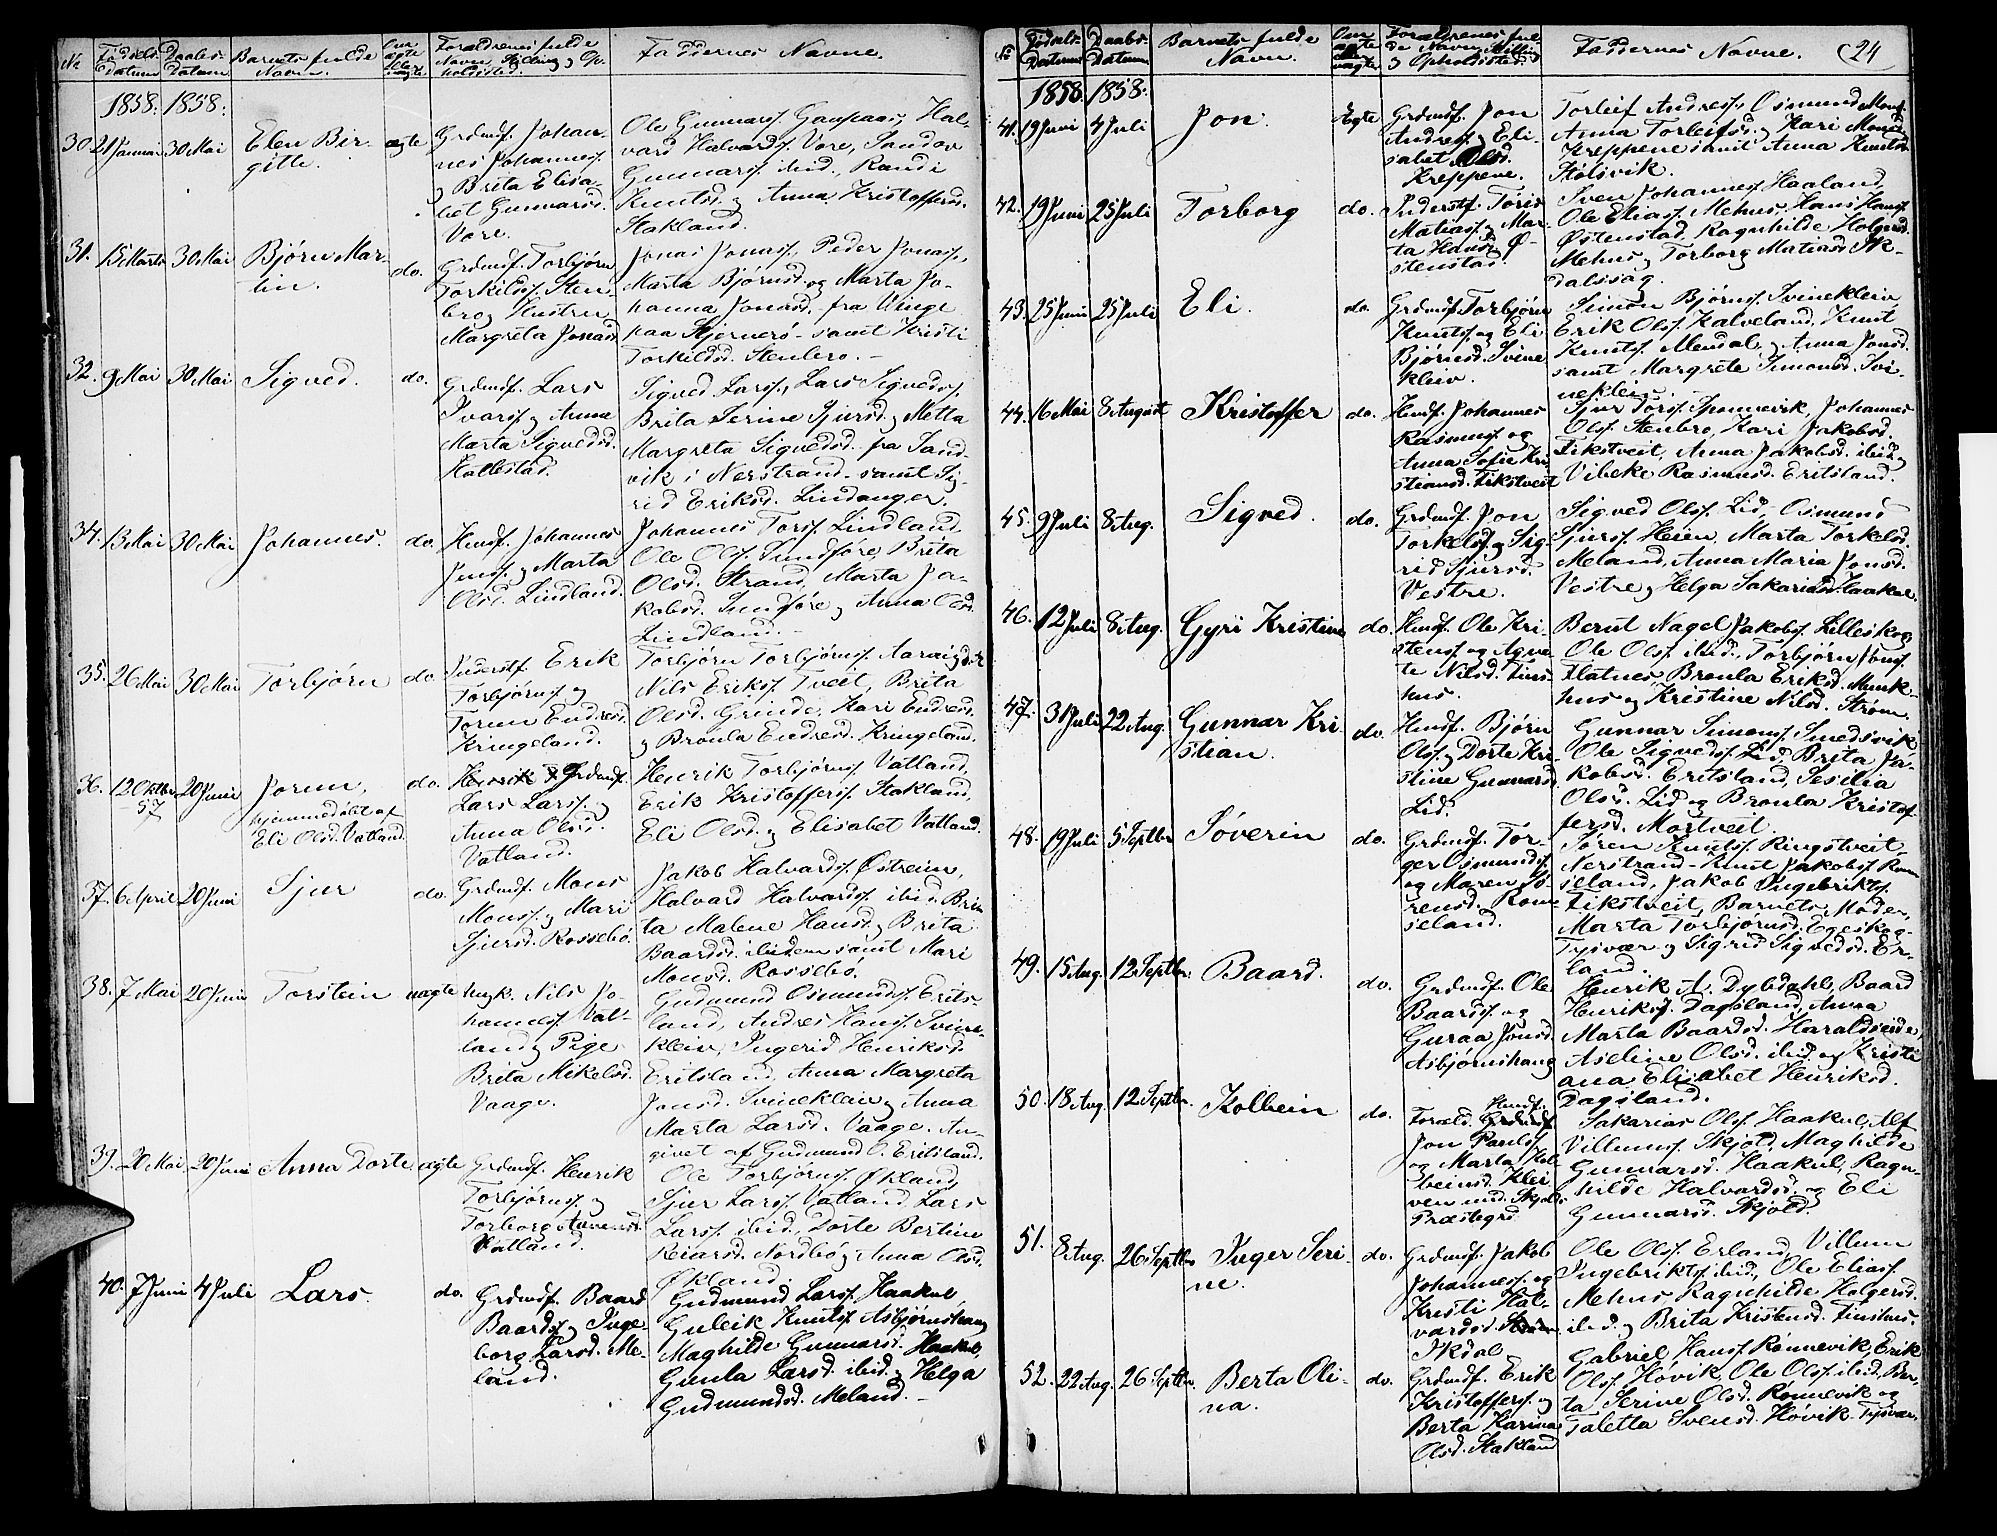 No
Fødsels-
datum
Daabs-
datum
Barnets fulde
Navn.
Om
ægte
eller
uægte
Forældrenes fulde
Navn, Stilling og Op-
holdssted.
Faddernes Navne.
1858. 1858.
30. 21 Januar 30 Mai
Elen Bir-
gitte.
ægte
Grdmdf. Johan-
nes Johanness.
og Brita Elisa-
bet Gunnarsd.
Vore.
Ole Gunnars. Gaupaas, Hal-
vard Halvards. Vore, Sandov
Gunnars. ibid., Randi
Knutsd. og Anna Kristoffersd.
Stakland.
31. 15 Marts 30 Mai
Bjørn Mar-
tin.
do.
Grdmdf. Torbjørn
Torkilds. Sten-
bro og Hustru
Margreta Jonasd.
Jonas Jonass., Peder Jonass.,
Marta Bjørnsd. og Marta Jo-
hanna Jonasd. fra Vinge
paa Stjernerø samt Kristi
Torkildsd. Stenbro. -
32. 9 Mai 30 Mai
Sigved.
do.
Grdmdf. Lars
Ivars. og Anna
Marta Sigvedsd.
Hallestad.
Sigved Larss., Lars Sigveds.,
Brita Serine Sjursd. og Metta
Margreta Sigvedsd. fra Sand-
vik i Nerstrand samt Sig-
rid Eriksd. Lindanger.
34. 13 Mai 30 Mai
Johannes.
do.
Husmdf. Johannes
Jonss. og Marta
Olsd. Lindland.
Johannes Torss. Lindland,
Ole Olss. Sundføre, Brita
Olsd. Strand, Marta Ja-
kobsd. Sundføre og Anna Olsd.
Lindland. -
35. 26 Mai 30 Mai
Torbjørn
do.
Inderstf. Erik
Torbjørns. og
Torun Endresd.
Kringeland.
Torbjørn Torbjørns. Aarvig der
Nils Eriks. Tveit, Brita
Olsd. Grinde, Kari Endresd.
og Bronla Endresd. Kringeland.
36. 12 Oktbr 57 20 Juni
Jorun,
hjemmedøbt af
Eli Olsd. Vatland.
do.
Grdmdf.
Lars Larss. og
Anna Olsd.
Vatland.
Henrik Torbjørns. Vatland,
Erik Kristoffers. Stakland,
Eli Olsd. og Elisabet Vatland.
37. 6 April 20 Juni
Sjur
do.
Grdmdf. Mons
Monss. og Mari
Sjursd. Rossebø.
Jakob Halvards. Østreim,
Halvard Halvards. ibid., Bri-
ta Malene Hansd. og Brita
Baardsd. ibidem samt Mari
Monsd. Rossebø.
38. 7 Mai 20 Juni
Torstein
uægte
Ungk. Nils Jo-
hanness. Vat-
land og Pige
Brita Mikelsd.
Vaage.
Gudmund Osmunds. Erits-
land, Andres Hanss. Svine-
kleiv, Ingerid Henriksd.
Eritsland, Anna Margreta
Jonsd. Svinekleiv og Anna
Marta Larsd. Vaage. An-
givet af Gudmund O. Eritsland.
39. 20 Mai 20 Juni
Anna Dorte
ægte
Grdmdf. Henrik
Torbjørns. og
Torborg
Vatland.
Ole Torbjørns. Økland,
Sjur Larss. Vatland, Lars
Larss. ibid., Dorte Bertine
Reiarsd. Nordbø og Anna Olsd.
Økland.
40. 7 Juni 4 Juli
Lars.
do.
Grdmdf. Baard
Baards. og Inge-
borg Larsd. Me-
land.
Gudmund Larss. Haakul,
Guleik Knuts. Asbjørnshaug
Maghilde Gunnarsd. Haakul,
Gunla Larsd. ibid. og Helga
Gudmundsd. Meland. -
No
Fødsels-
Datum
Daabs-
datum
Barnets fulde
Navn.
Om
ægte
eller
uægte
Forældrenes ful-
de Navn, Stilling
og Opholdssted.
Faddernes Navne.
24
1858. 1858.
41. 19 Juni 4 Juli
Jon.
Ægte
Grdmdf. Jon
Andress. og Eli-
sabet Olsd.
Kreppene.
Torleif Andress., Osmund Monss.
Anna Torleifsd. og Kari Monsd.
Kreppene samt Anna Knutsd.
Stølsvik.
42. 19 Juni 25 Juli
Torborg
do.
Inderstf. Tøris
Matiass. og Mar-
ta Hansd. Ø-
stenstad.
Sven Johanness. Haaland,
Ole Eliass. Mehus, Hans Hanss.
Østenstad, Ragnhilde Holgersd.
Mehus og Torborg Matiasd. Ik-
dalssag.
43. 25 Juni 25 Juli
Eli.
do.
Grdmdf. Torbjørn
Knuts. og Eli
Bjørnsd. Svine
kleiv.
Simon Bjørns. Svinekleiv,
Erik Olss. Kalveland, Knut
Knuts. Alendal og Anna Jonsd.
samt Margrete Simonsd. Svi-
nekleiv.
44. 16 Mai 8 August
Kristoffer
do.
Husmdf. Johannes
Rasmuss. og
Anna Sofie Kri-
stiansd. Fikstveit
Sjur Torss. Sponnevik, Johannes
Olss. Stenbro, Kari Jakobsd.
Fikstveit, Anna Jakobsd. ibid. og
Vibeke Rasmusd. Eritsland.
45. 9 Juli 8 Aug.
Sigved.
do.
Grdmdf. Jon
Torkels. og Sig-
rid Sjursd.
Vestre.
Sigved Olss. Lid, Osmund
Sjurss. Heien, Marta Torkelsd.
Meland, Anna Maria Jonsd.
Vestre og Helga Sakariasd. Haakul.
46. 12 Juli 8 Aug.
Gyri Kristine
do.
Husmdf. Ole Kri-
stens. og Agne-
te Nilsd. Tins-
hus.
Bernt Nagel Jakobs. Lilleskog,
Ole Olss. ibid., Torbjørn Jonss.
Flatnes, Bronla Eriksd. Munk-
hus og Kristine Nilsd. Strøm.
47. 31 Juli 22 Aug.
Gunnar Kri-
stian.
do.
Husmdf. Bjørn
Olss. og Dorte Kri-
stine Gunnarsd.
Lid.
Gunnar Simons. Smedsvik
Ole Sigveds. Lid, Brita Ja-
kobsd. Eritsland, Sesilia
Olsd. Lid og Bronla Kristof-
fersd. Mortveit.
48. 19 Juli 5 Septbr
Søverin
do.
Grdmdf. Tor-
ger Osmunds.
og Maren Sø-
rensd. Rom-
seland.
Søren Knuts. Ringstveit
Nerstrand, Knut Jakobs. Rom-
seland, Jakob Ingebrikts.
Fikstveit, Barnets Moder,
Marta Torbjørnsd. Egeskog
Tysvær og Sigrid Sigvedsd. Er-
land.
49. 15 Aug. 12 Septbr.
Baard.
do.
Grdmdf. Ole
Baards. og
Guraa Jonsd.
Asbjørnshaug
Henrik A. Dybdahl, Baard
Henriks. Dagsland, Anna
Marta Baardsd. Haraldseide,
Aseline Olsd. ibid. og Kristi
ana Elisabet Henriksd.
Dagsland.
50. 18 Aug. 12 Septbr.
Kolbein
do.
Husmdf.
Foræld.
Jon Pauls.
og Marta Kol-
beinsd. Klei-
ven und. Skjolds
Præstegrd.
Sakarias Olss. Haakul, Alf
Villums. Skjold, Maghilde
Gunnarsd. Haakul, Ragn-
hilde Halvardsd. og Eli
Gunnarsd. Skjold.
51. 8 Aug. 26 Septbr
Inger Seri-
ne.
do.
Grdmdf. Jakob
Johanness. og
Kristi Hal-
vardsd.
Ikdal
Ole Olss. Erland, Villum
Ingebrikts. ibid., Ole Eliass.
Mehus, Ragnhilde Holgersd.
ibid. og Brita Kristensd. Tinshus.
52. 22 Aug. 26 Septbr.
Berta Oli-
na.
do.
Grdmdf. Erik
Kristoffers. og
Berta Karina
Olsd. Stakland
Gabriel Hanss. Rønnevik, Erik
Olss. Høvik, Ole Olss. ibid., Ber-
ta Serine Olsd. Rønnevik og
Taletta Svensd. Høvik Tysvær.